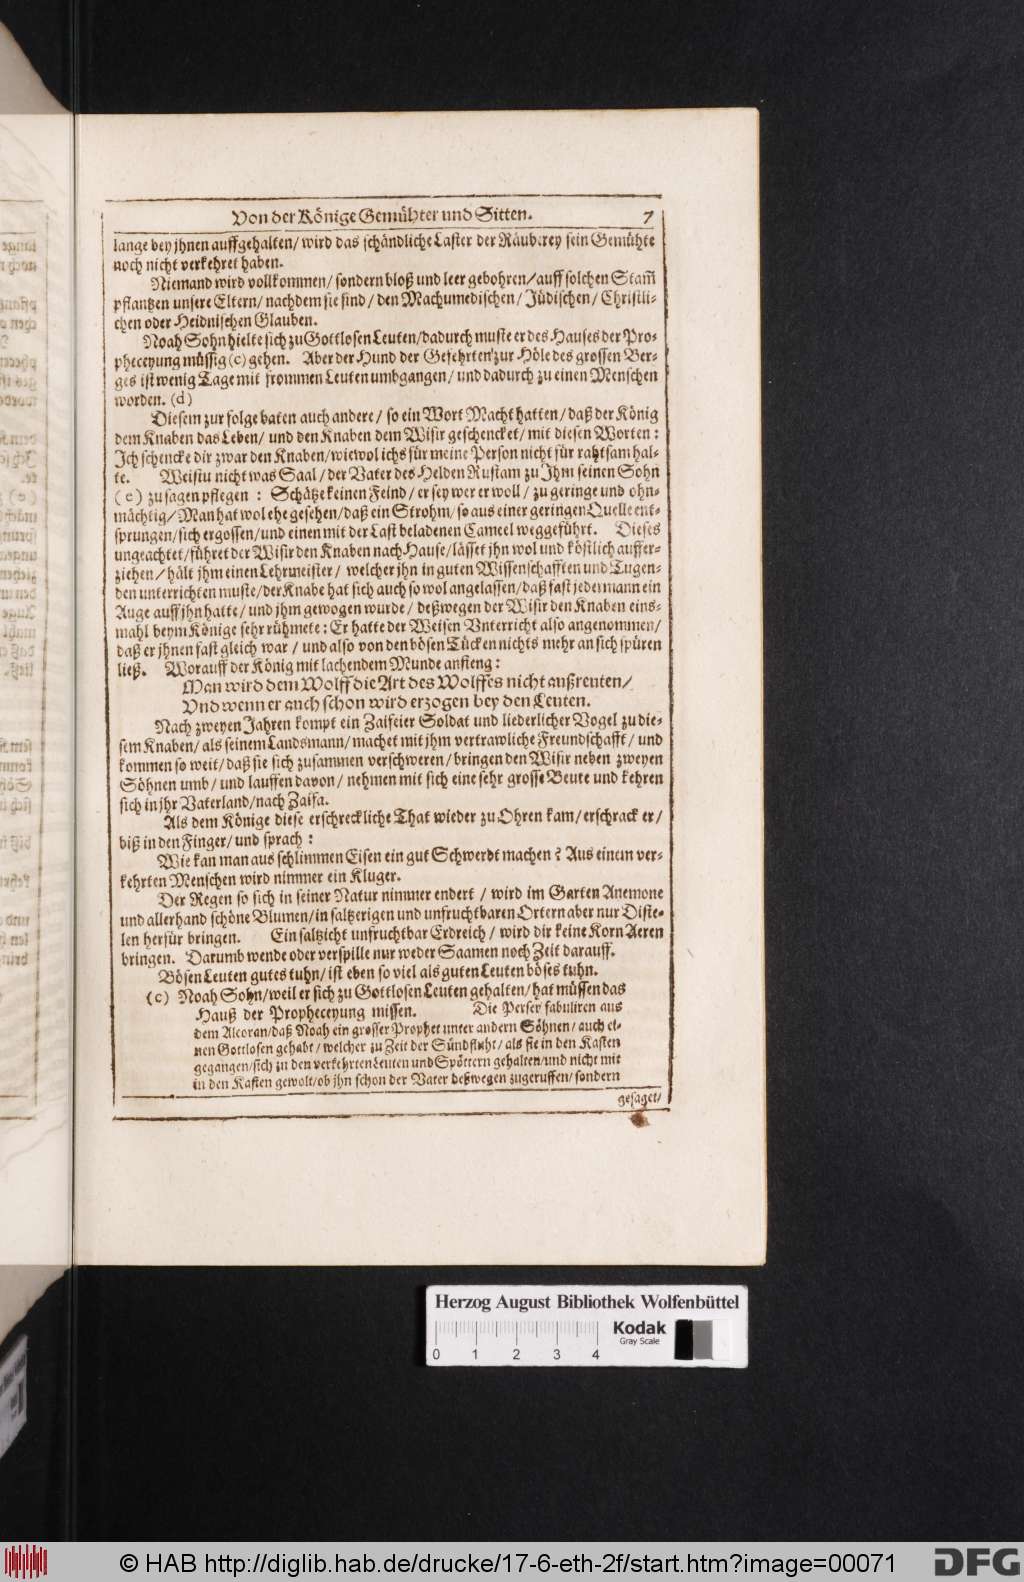 Von der Könige Gemühter und Sitten. 7
lange bey jhnen auffgehalten/ wird das schändliche Laster der Räuberey sein Gemühte
noch nicht verkehret haben.
Niemand wird vollkommen/ sondern bloß und leer gebohren/ auff solchen Stam̃
pflantzen unsere Eltern/ nachdem sie sind/ den Machumedischen/ Jüdischen/ Christli-
chen oder Heidnischen Glauben.
Noah Sohn hielte sich zu Gottlosen Leuten/ dadurch muste er des Hauses der Pro-
pheceyung müssig (c) gehen. Aber der Hund der Gefehrten zur Höle des grossen Ber-
ges ist wenig Tage mit frommen Leuten umbgangen/ und dadurch zu einen Menschen
worden. (d)
Diesem zur folge baten auch andere/ so ein Wort Macht hatten/ daß der König
dem Knaben das Leben/ und den Knaben dem Wisir geschencket/ mit diesen Worten:
Ich schencke dir zwar den Knaben/ wiewol ichs für meine Person nicht für rahtsam hal-
te. Weistu nicht was Saal/ der Vater des Helden Rustam zu Ihm seinen Sohn
(e) zu sagen pflegen: Schätze keinen Feind/ er sey wer er woll/ zu geringe und ohn-
mächtig/ Man hat wol ehe gesehen/ daß ein Strohm/ so aus einer geringen Quelle ent-
sprungen/ sich ergossen/ und einen mit der Last beladenen Cameel weggeführt. Dieses
ungeachtet/ führet der Wisir den Knaben nach Hause/ lässet jhn wol und köstlich auffer-
ziehen/ hält jhm einen Lehrmeister/ welcher jhn in guten Wissenschafften und Tugen-
den unterrichten muste/ der Knabe hat sich auch so wol angelassen/ daß fast jedermann ein
Auge auff jhn hatte/ und jhm gewogen wurde/ deßwegen der Wisir den Knaben eins-
mahl beym Könige sehr rühmete: Er hatte der Weisen Vnterricht also angenommen/
daß er jhnen fast gleich war/ und also von den bösen Tücken nichts mehr an sich spüren
ließ. Worauff der König mit lachendem Munde anfieng:
Man wird dem Wolff die Art des Wolffes nicht außreuten/
Vnd wenn er auch schon wird erzogen bey den Leuten.
Nach zweyen Jahren kompt ein Zaifeier Soldat und liederlicher Vogel zu die-
sem Knaben/ als seinem Landsmann/ machet mit jhm vertrawliche Freundschafft/ und
kommen so weit/ daß sie sich zusammen verschweren/ bringen den Wisir neben zweyen
Söhnen umb/ und lauffen davon/ nehmen mit sich eine sehr grosse Beute und kehren
sich in jhr Vaterland/ nach Zaifa.
Als dem Könige diese erschreckliche That wieder zu Ohren kam/ erschrack er/
biß in den Finger/ und sprach:
Wie kan man aus schlimmen Eisen ein gut Schwerdt machen? Aus einem ver-
kehrten Menschen wird nimmer ein Kluger.
Der Regen so sich in seiner Natur nimmer endert/ wird im Garten Anemone
und allerhand schöne Blumen/ in saltzerigen und unfruchtbaren Ortern aber nur Diste-
len herfür bringen. Ein saltzicht unfruchtbar Erdreich/ wird dir keine Korn Aeren
bringen. Darumb wende oder verspille nur weder Saamen noch Zeit darauff.
Bösen Leuten gutes tuhn/ ist eben so viel als guten Leuten böses tuhn.
(c) Noah Sohn/ weil er sich zu Gottlosen Leuten gehalten/ hat müssen das
Hauß der Propheceyung missen. Die Perser fabuliren aus
dem Alcoran/ daß Noah ein grosser Prophet unter andern Söhnen/ auch ei-
nen Gottlosen gehabt/ welcher zu Zeit der Sündfluht/ als sie in den Kasten
gegangen/ sich zu den verkehrten Leuten und Spöttern gehalten/ und nicht mit
in den Kasten gewolt/ ob jhn schon der Vater deßwegen zugeruffen/ sondern
gesaget/
Herzog August Bibliothek Wolfenbüttel
Kodak
Gray Scale
0 1 2 3 4
© HAB http://diglib.hab.de/drucke/17-6-eth-2f/start.htm?image=00071
DFG